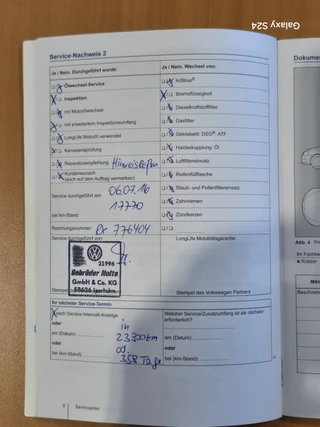 Galaxy S24
Service-Nachweis 2
Ja / Nein: Durchgeführt wurde:
Ölwechsel-Service
Inspektion
mit Motorölwechsel
mit erweitertem Inspektionsumfang
LongLife Motoröl verwendet
Karosserieprüfung
Reparaturempfehlung
Kundenwunsch
(auch auf dem Auftrag vermerken)
Service durchgeführt am: 06.07.16
bei km-Stand: 17770
Rechnungsnummer: 776404
Service durchgeführt von:
21996
Gebrüder Nolte
GmbH & Co. KG
58636 Iserlohn
Ja / Nein: Wechsel von:
AdBlue®
Bremsflüssigkeit
Dieselkraftstofffilter
Gasfilter
Getriebeöl: DSG®, ATF
Haldexkupplung: Öl
Luftfiltereinsatz
Reifenfüllflasche
Staub- und Pollenfiltereinsatz
Zahnriemen
Zündkerzen
LongLife Mobilitätsgarantie
Stempel des Volkswagen Partners
Ihr nächster Service-Termin
nach Service-Intervall-Anzeige
oder in
am (Datum): 23900 km
oder od.
bei (km-Stand): 358 Tage
Welcher Service/Zusatzumfang ist als nächstes
erforderlich?
am (Datum):
oder
bei (km-Stand):
8 Serviceplan
Dokume
Abb. 4
Ihr Fachbe
Kratzer
Beschreibu